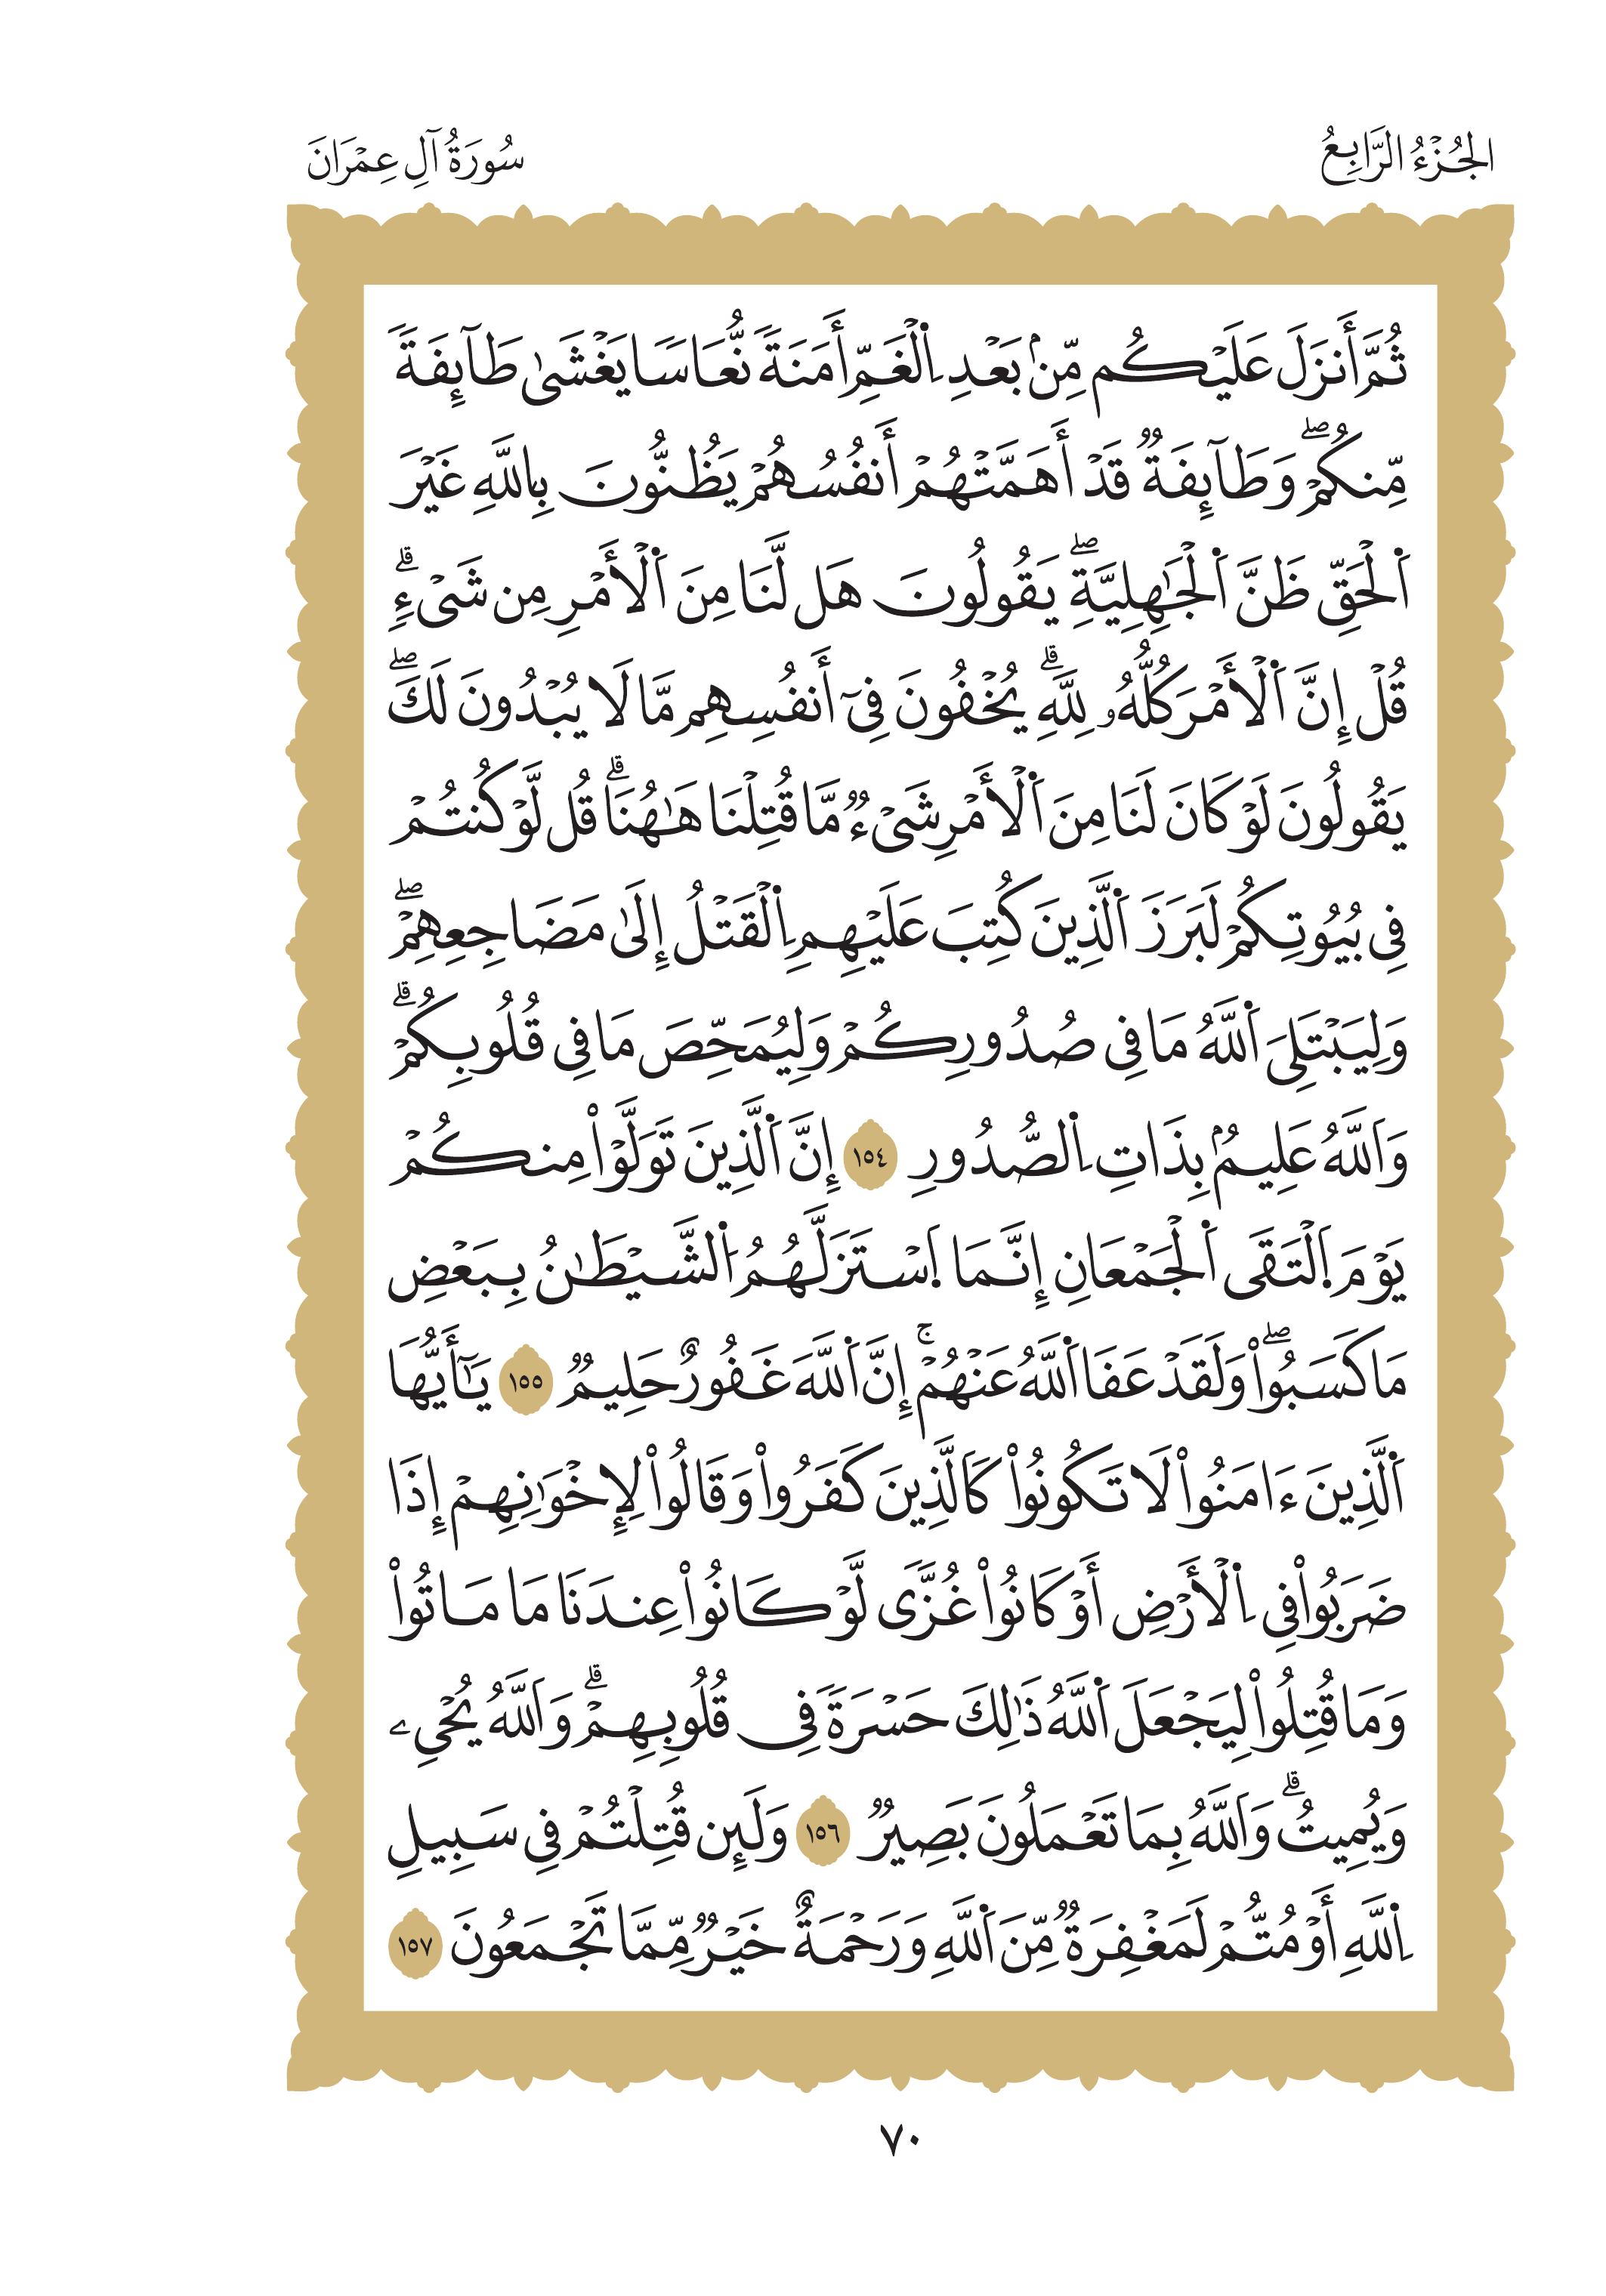 الجُزْءُ الرَّابِعُ
سُورَةُ آلِ عِمْرَانَ
ثُمَّ أَنزَلَ عَلَيْكُم مِّنۢ بَعْدِ اِ۬لْغَمِّ أَمَنَةً نُّعَاسًا يَغْشَىٰ طَآئِفَةً
مِّنكُمْۖ وَطَآئِفَةٌ قَدْ أَهَمَّتْهُمْ أَنفُسُهُمْ يَظُنُّونَ بِاللَّهِ غَيْرَ
اَ۬لْحَقِّ ظَنَّ اَ۬لْجَٰهِلِيَّةِۖ يَقُولُونَ هَل لَّنَا مِنَ اَ۬لْأَمْرِ مِن شَىْءٍۗ
قُلْ إِنَّ اَ۬لْأَمْرَ كُلُّهُۥ لِلَّهِۗ يُخْفُونَ فِىٓ أَنفُسِهِم مَّا لَا يُبْدُونَ لَكَۖ
يَقُولُونَ لَوْ كَانَ لَنَا مِنَ اَ۬لْأَمْرِ شَىْءٌ مَّا قُتِلْنَا هَٰهُنَاۗ قُل لَّوْ كُنتُمْ
فِى بُيُوتِكُمْ لَبَرَزَ اَ۬لَّذِينَ كُتِبَ عَلَيْهِمِ اِ۬لْقَتْلُ إِلَىٰ مَضَاجِعِهِمْۖ
وَلِيَبْتَلِىَ اَ۬للَّهُ مَا فِى صُدُورِكُمْ وَلِيُمَحِّصَ مَا فِى قُلُوبِكُمْۗ
وَاَللَّهُ عَلِيمُۢ بِذَاتِ اِ۬لصُّدُورِ ١٥٤ إِنَّ اَ۬لَّذِينَ تَوَلَّوْا۟ مِنكُمْ
يَوْمَ اَ۪لْتَقَى اَ۬لْجَمْعَانِ إِنَّمَا اَ۪سْتَزَلَّهُمُ اُ۬لشَّيْطَٰنُ بِبَعْضِ
مَا كَسَبُوا۟ۖ وَلَقَدْ عَفَا اَ۬للَّهُ عَنْهُمْۚ إِنَّ اَ۬للَّهَ غَفُورٌ حَلِيمٌ ١٥٥ يَٰٓأَيُّهَا
اَ۬لَّذِينَ ءَامَنُوا۟ لَا تَكُونُوا۟ كَالَّذِينَ كَفَرُوا۟ وَقَالُوا۟ لِإِخْوَٰنِهِمْ إِذَا
ضَرَبُوا۟ فِى اِ۬لْأَرْضِ أَوْ كَانُوا۟ غُزًّى لَّوْ كَانُوا۟ عِندَنَا مَا مَاتُوا۟
وَمَا قُتِلُوا۟ لِيَجْعَلَ اَ۬للَّهُ ذَٰلِكَ حَسْرَةً فِى قُلُوبِهِمْۗ وَاَللَّهُ يُحْىِۦ
وَيُمِيتُۗ وَاَللَّهُ بِمَا تَعْمَلُونَ بَصِيرٌ ١٥٦ وَلَئِن قُتِلْتُمْ فِى سَبِيلِ
اِ۬للَّهِ أَوْ مُتُّمْ لَمَغْفِرَةٌ مِّنَ اَ۬للَّهِ وَرَحْمَةٌ خَيْرٌ مِّمَّا تَجْمَعُونَ ١٥٧
٧٠